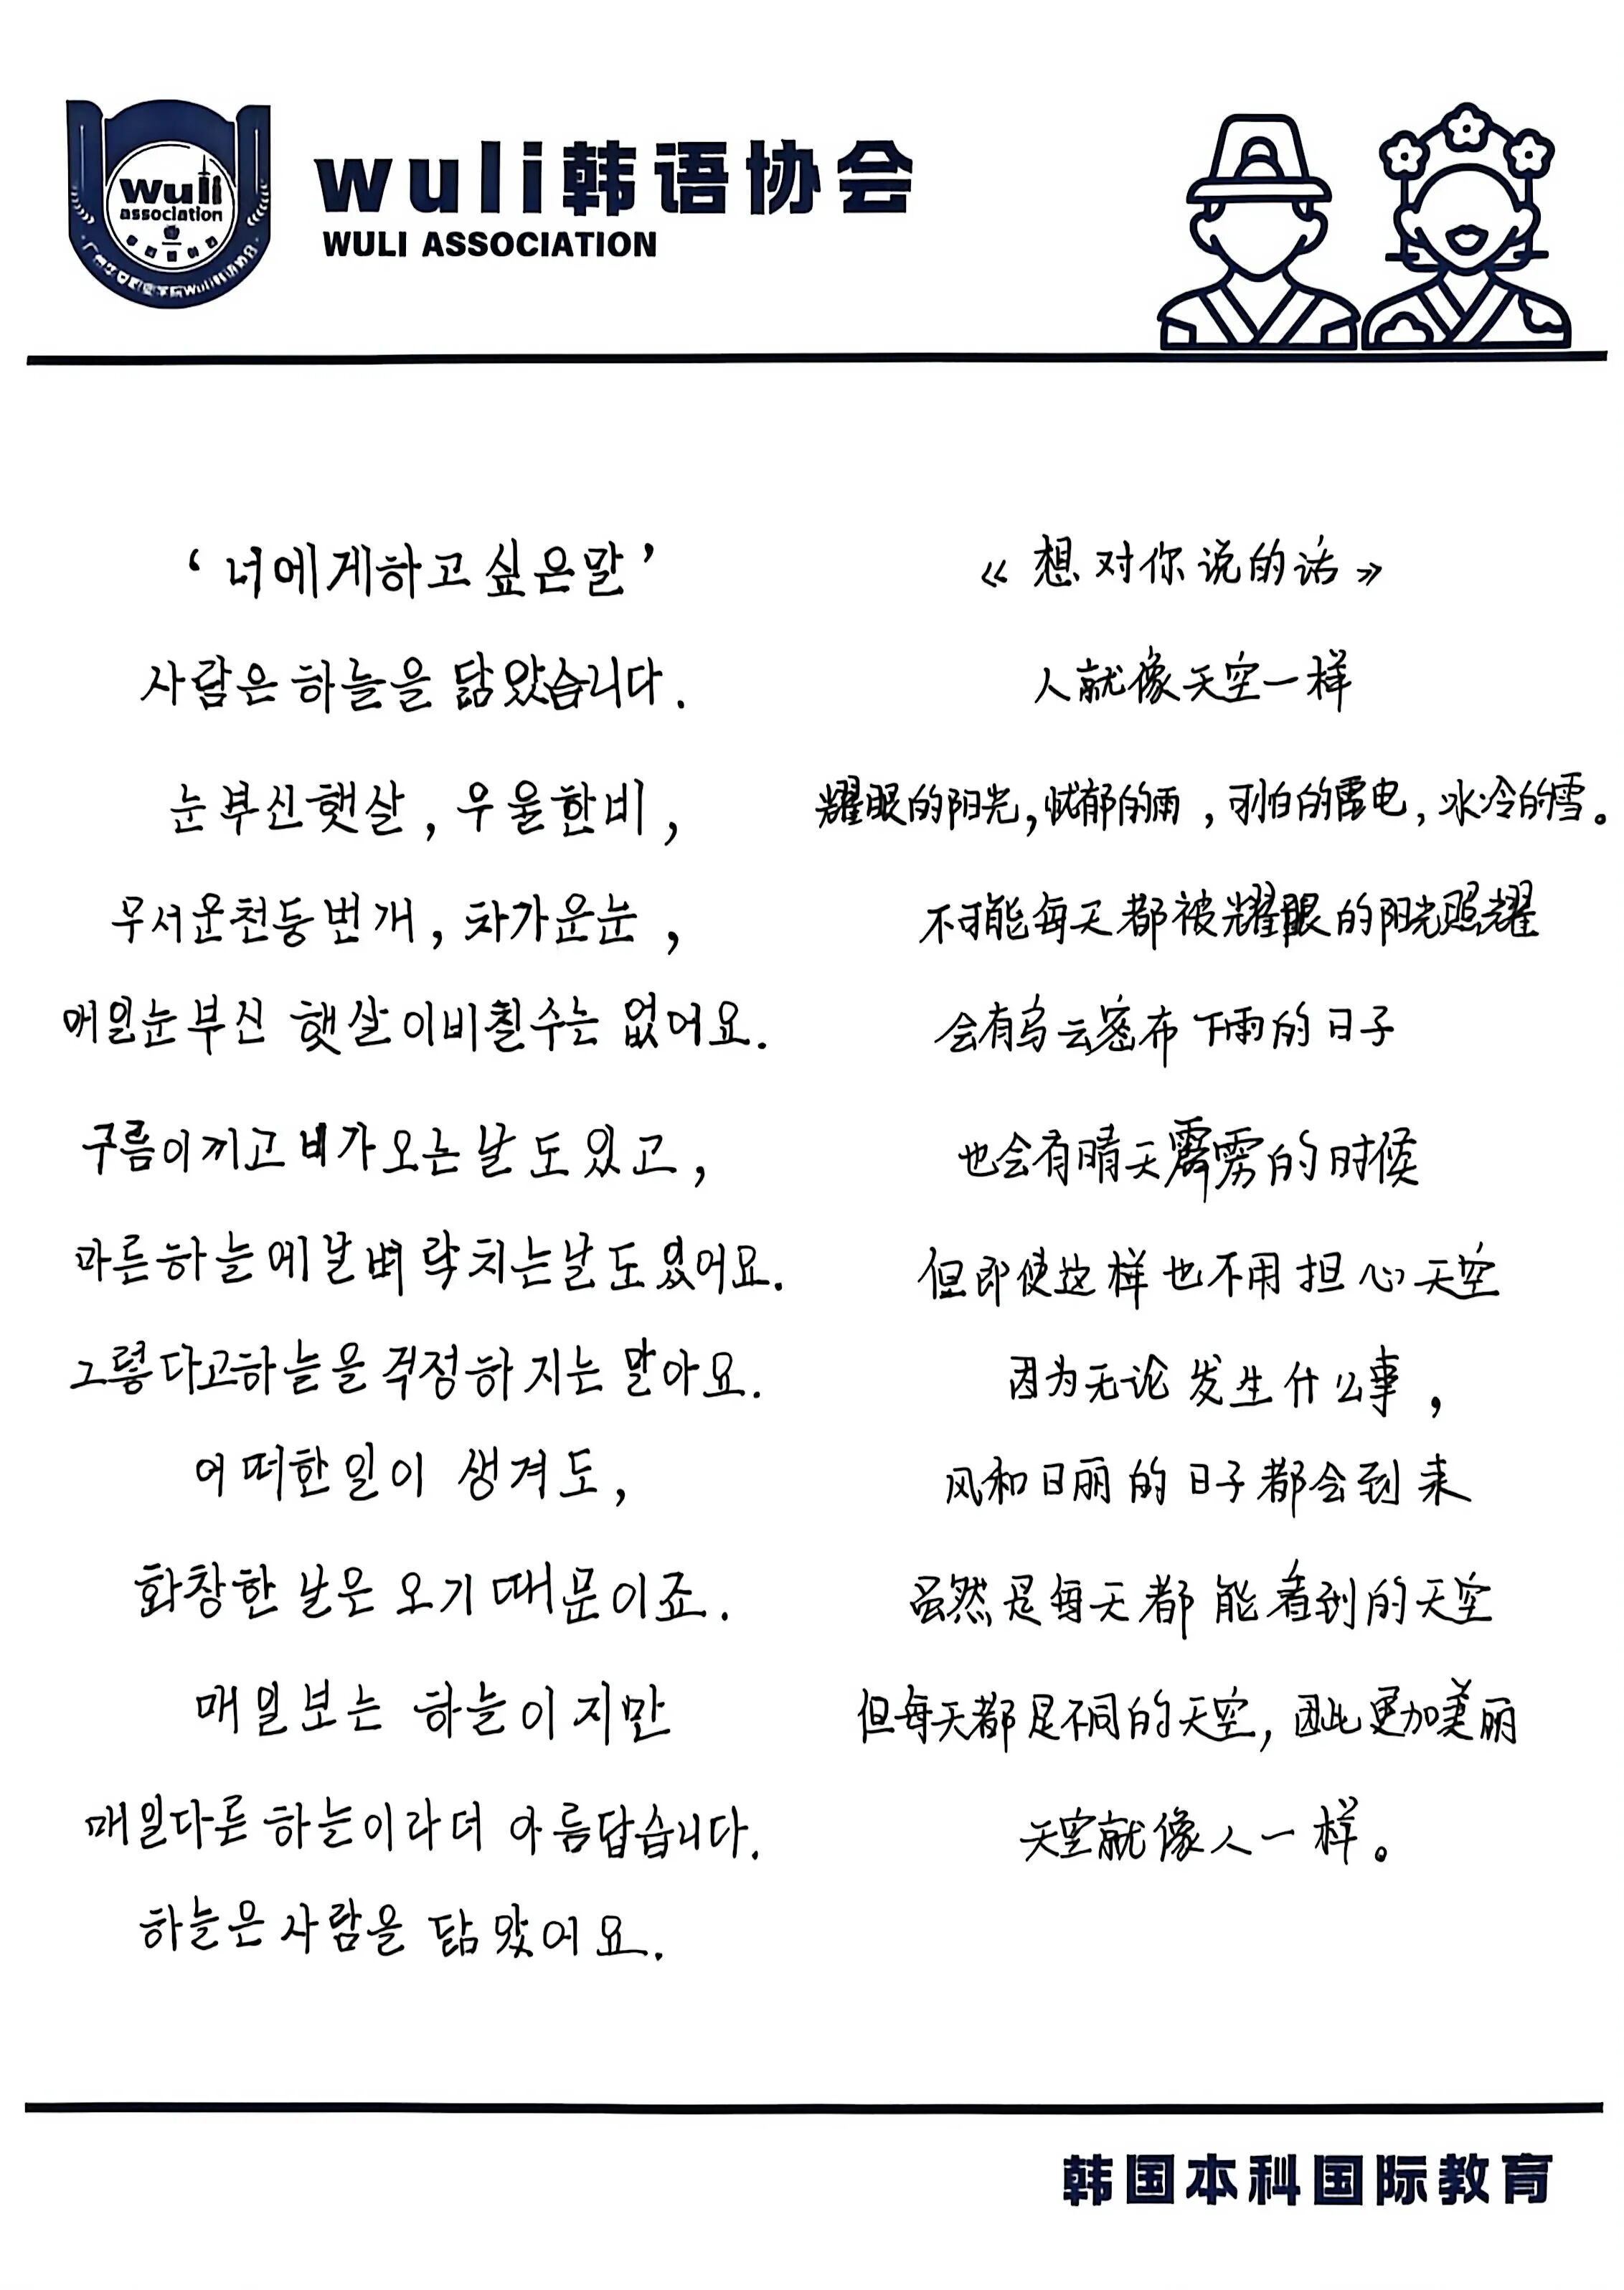 wuli
association
wuli韩语协会
WULI ASSOCIATION
‘너에게하고싶은말’
사람은하늘을 닮았습니다.
눈부신햇살,우울한비,
무서운천둥번개,차가운눈,
매일눈부신 햇살이비칠수는 없어요.
구름이끼고비가오는날도있고,
마른하늘에날벼락치는날도있어요.
그렇다고하늘을걱정하지는 말아요.
어떠한일이 생겨도,
화창한날은 오기때문이죠.
매일보는 하늘이지만
매일다른하늘이라더 아름답습니다.
하늘은사람을 닮았어요.
《想对你说的话》
人就像天空一样
耀眼的阳光,忧郁的雨,可怕的雷电,冰冷的雪。
不可能每天都被耀眼的阳光照耀
会有乌云密布下雨的日子
也会有晴天霹雳的时候
但即使这样也不用担心天空
因为无论发生什么事,
风和日丽的日子都会到来
虽然是每天都能看到的天空
但每天都是不同的天空,因此更加美丽
天空就像人一样。
韩国本科国际教育